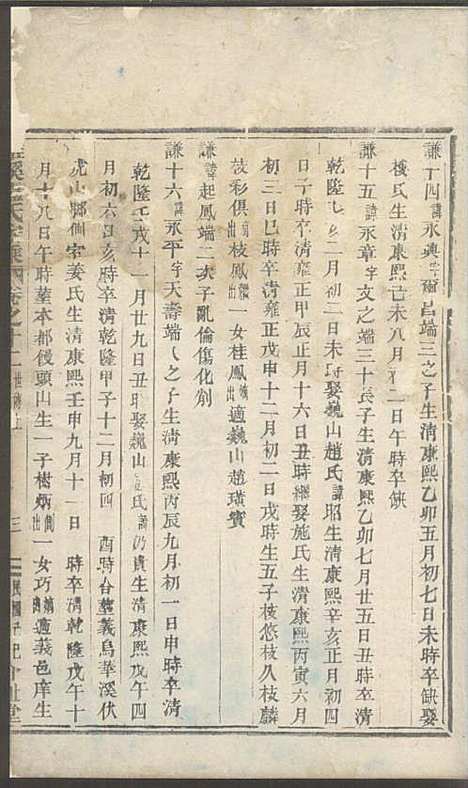 謙十四諱永興字爾昌端三之子生清康熙乙卯五月初七日未時卒缺娶
樓氏生清康熙己未八月十二日午時卒缺
謙十五諱永章字文之端三十長子生清康熙乙卯七月廿五日丑時卒清
乾隆 二月初三日未時娶巍山趙氏諱昭生清康熙辛亥正月初四
日子時卒清雍正甲辰正月十六日丑時繼娶施氏生清康熙丙寅六月
初三日巳時卒清雍正戊申十二月初二日戌時生五子枝悠枝久枝麟
枝彩俱前出枝鳳繼出一女桂鳳繼出適巍山趙璜賓
謙諱起鳳端二次子亂倫傷化削
謙十六諱永平字天壽端八之子生清康熙丙辰九月初一日申時卒清
乾隆壬戌十一月廿九日丑時娶巍山 氏諱 貴生清康熙戊午四
月初六日亥時卒清乾隆甲子十二月初四 酉時合塟義烏華溪伏
虎山腳側室姜氏生清康熙壬申九月十一日 時卒清乾隆戊午十
月十八日午時塟本都饅頭山生一子樹炳側出一女巧 適義邑庠生
卷之十二世傳上 三